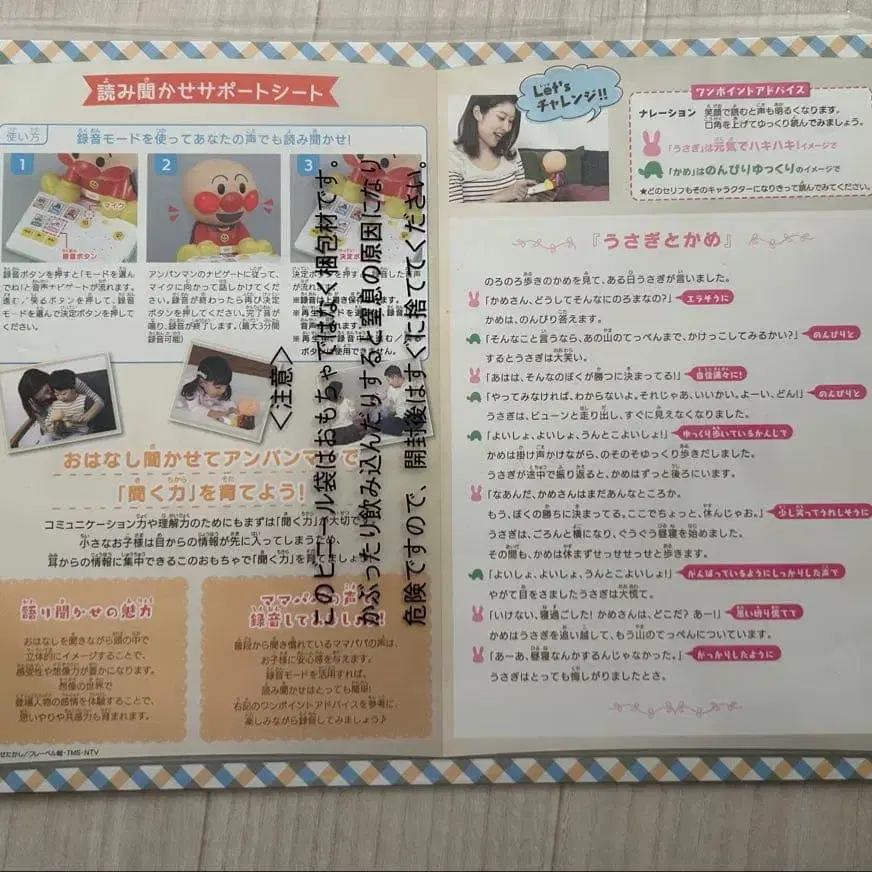 読み聞かせサポートシート
使い方
録音モードを使ってあなたの声でも読み聞かせ!
1
マイク
録音ボタン
録音ボタンを押すと「モードを選んでね!」と音声ナビゲートが流れます。
ボタンを押して、録音
モードを選んで決定ボタンを押して
ください。
2
アンパンマンのナビゲートに従って、
マイクに向かって話しかけてくだ
さい。録音が終わったら再び決定
ボタンを押してください。完了音が
鳴り、録音が終了します。(最大3分間
録音可能)
3
<注意>
このビニール袋はおもちゃではなく梱包材です。
かぶったり飲み込んだりすると窒息の原因になり
危険ですので、開封後はすぐに捨ててください。
おはなし聞かせてアンパンマンで
「聞く力」を育てよう!
コミュニケーション力や理解力のためにもまずは「聞く力」が大切
小さなお子様は目からの情報が先に入ってしまうため、
耳からの情報に集中できるこのおもちゃで「聞く力」を育てましょう
語り聞かせの魅力
おはなしを聞きながら頭の中で
立体的にイメージすることで、
感受性や想像力が豊かになります。
想像の世界で
登場人物の感情を体験することで、
思いやりや共感力も育まれます。
ママパパの声
録音してみましょう!
普段から聞き慣れているママパパの声は、
お子様に安心感を与えます。
録音モードを活用すれば、
読み聞かせはとっても簡単!
右記のワンポイントアドバイスを参考に、
楽しみながら録音してみましょう♪
せたかし/フレーベル館・TMS・NTV
Let's
チャレンジ!!
ワンポイントアドバイス
ナレーション 笑顔で読むと声も明るくなります。
口角を上げてゆっくり読んでみましょう。
「うさぎ」は元気でハキハキ!イメージで
「かめ」はのんびりゆっくりのイメージで
★どのセリフもそのキャラクターになりきって読んでみてください。
『うさぎとかめ』
のろのろ歩きのかめを見て、ある日うさぎが言いました。
「かめさん、どうしてそんなにのろまなの?」 エラそうに
かめは、のんびり答えます。
「そんなこと言うなら、あの山のてっぺんまで、かけっこしてみるかい?」 のんびりと
するとうさぎは大笑い。
「あはは、そんなのぼくが勝つに決まってる!」 自信満々に!
「やってみなければ、わからないよ。それじゃあ、いいかい。よーい、どん!」 のんびりと
うさぎは、ビューンと走り出し、すぐに見えなくなりました。
「よいしょ、よいしょ、うんとこよいしょ!」 ゆっくり歩いているかんじで
かめは掛け声かけながら、のそのそゆっくり歩きだしました。
うさぎが途中で振り返ると、かめはずっと後ろにいます。
「なあんだ、かめさんはまだあんなところか。
もう、ぼくの勝ちに決まってる。ここでちょっと、休んじゃお。」 少し笑ってうれしそうに
うさぎは、ごろんと横になり、ぐうぐう昼寝を始めました。
その間も、かめは休まずせっせせっせと歩きます。
「よいしょ、よいしょ、うんとこよいしょ!」 がんばっているようにしっかりした声で
やがて目をさましたうさぎは大慌て。
「いけない、寝過ごした! かめさんは、どこだ? あー!」 思い切り慌てて
かめはうさぎを追い越して、もう山のてっぺんについています。
「あーあ、昼寝なんかするんじゃなかった。」 がっかりしたように
うさぎはとっても悔しがりましたとさ。